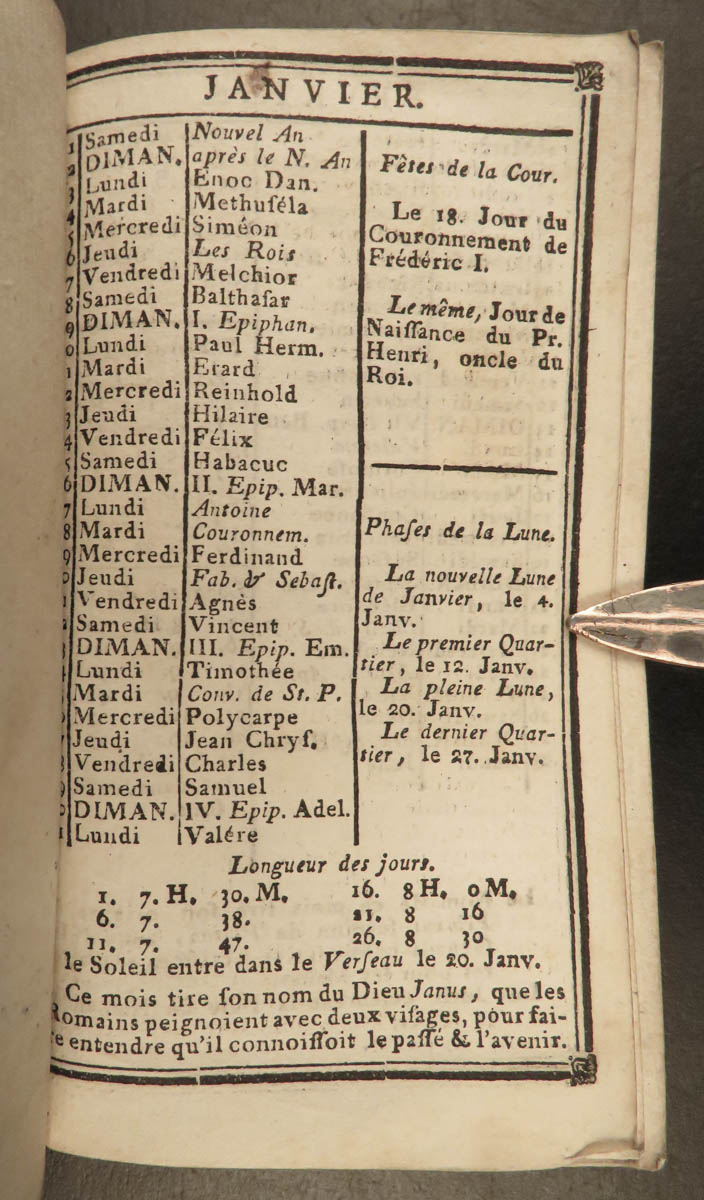 JANVIER.
1 Samedi Nouvel An
2 DIMAN. après le N. An
3 Lundi Enoc Dan.
4 Mardi Methuſéla
5 Mercredi Siméon
6 Jeudi Les Rois
7 Vendredi Melchior
8 Samedi Balthaſar
9 DIMAN. I. Epiphan.
0 Lundi Paul Herm.
1 Mardi Erard
2 Mercredi Reinhold
3 Jeudi Hilaire
4 Vendredi Félix
5 Samedi Habacuc
6 DIMAN. II. Epip. Mar.
7 Lundi Antoine
8 Mardi Couronnem.
9 Mercredi Ferdinand
0 Jeudi Fab. & Sebaſt.
1 Vendredi Agnès
2 Samedi Vincent
DIMAN. III. Epip. Em.
Lundi Timothée
Mardi Conv. de St. P.
Mercredi Polycarpe
Jeudi Jean Chryſ.
Vendredi Charles
Samedi Samuel
DIMAN. IV. Epip. Adel.
Lundi Valére
Fêtes de la Cour.
Le 18. Jour du
Couronnement de
Frédéric I.
Le même, Jour de
Naiſſance du Pr.
Henri, oncle du
Roi.
Phaſes de la Lune.
La nouvelle Lune
de Janvier, le 4.
Janv.
Le premier Quar-
tier, le 12. Janv.
La pleine Lune,
le 20. Janv.
Le dernier Quar-
tier, le 27. Janv.
Longueur des jours.
1. 7. H. 30. M. 16. 8 H. 0 M.
6. 7. 38. 21. 8 16
11. 7. 47. 26. 8 30
le Soleil entre dans le Verſeau le 20. Janv.
Ce mois tire ſon nom du Dieu Janus, que les
Romains peignoient avec deux viſages, pour fai-
re entendre qu'il connoiſſoit le paſſé & l'avenir.